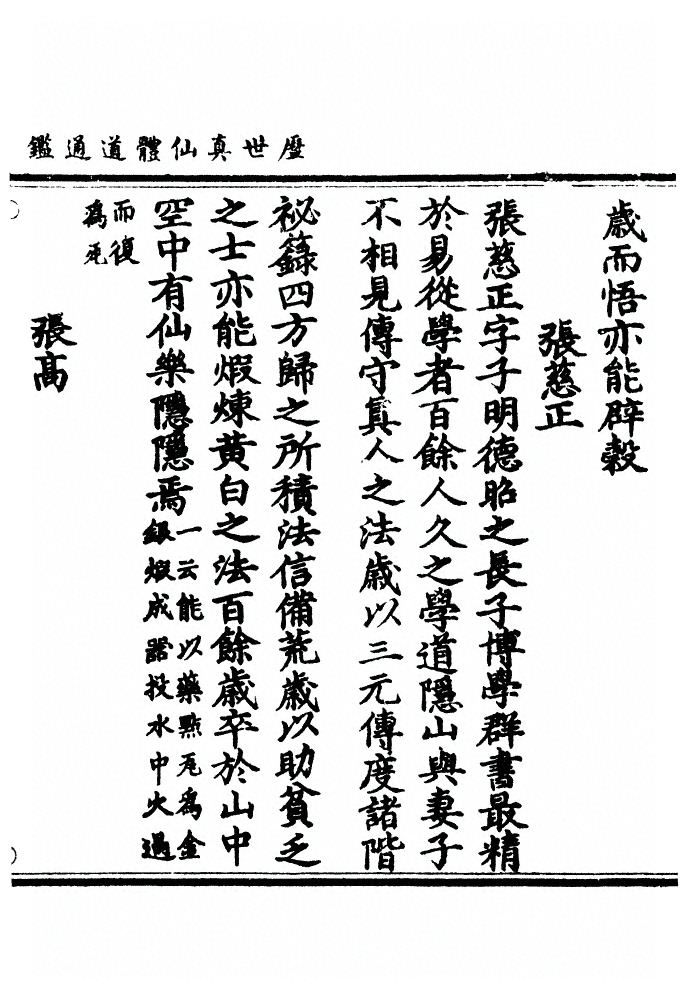 歷世真仙體道通鑑
歲而悟亦能辟穀
張慈正
張慈正字子明德昭之長子博學群書最精
於易從學者百餘人久之學道隱山與妻子
不相見傳守真人之法歲以三元傳度諸階
祕籙四方歸之所積法信備荒歲以助貧乏
之士亦能煆煉黃白之法百餘歲卒於山中
空中有仙樂隱隱焉
一云能以藥㸃瓦為金
銀煆成器投水中火過
而復
為瓦
張高